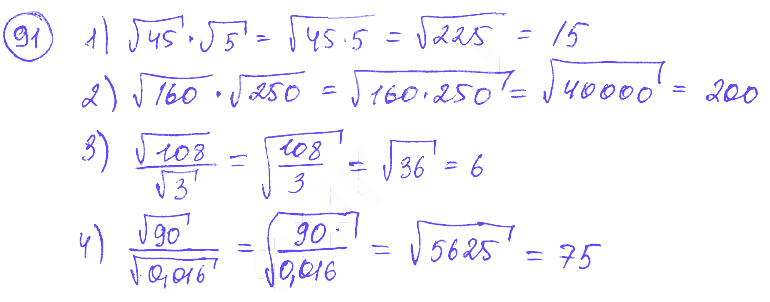 91 1) √45 · √5 = √45·5 = √225 = 15
2) √160 · √250 = √160·250 = √40000 = 200
3) √108/√3 = √108/3 = √36 = 6
4) √90/√0,016 = √90·/0,016 = √5625 = 75